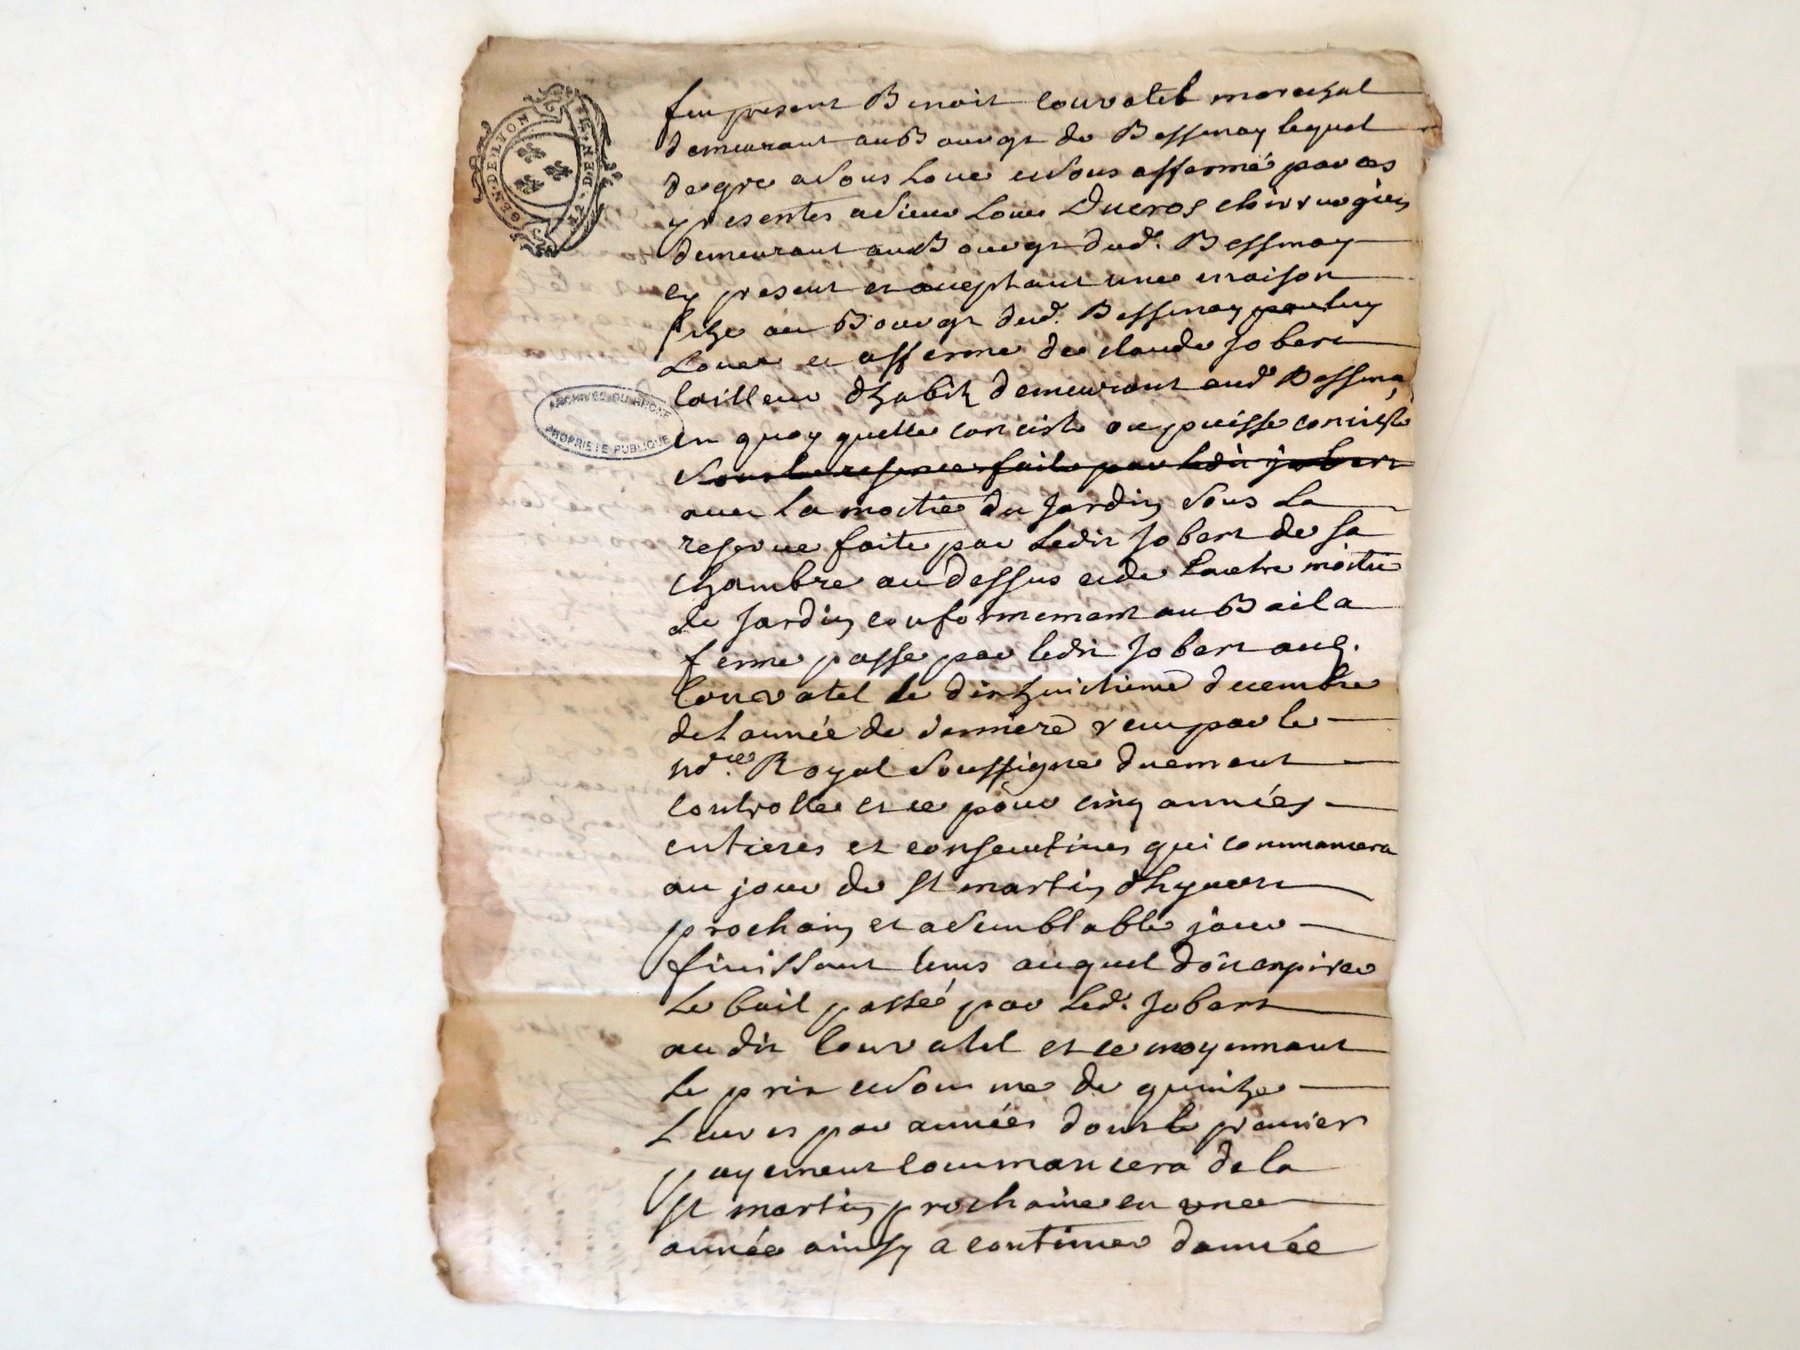 GEN. DE LYON
ARCHIVES DU RHONE
PROPRIETE PUBLIQUE
fut present Benoit Couvatel marechal
demeurant au Bourgt de Bessenay lequel
de gre a sous loué et sous affermé par ces
presentes a sieur Louis Ducros chirurgien
demeurant au Bourgt dud. Bessenay
cy present et acceptant une maison
size au Bourgt dud. Bessenay par luy
Louee et afferme de claude Jobert
tailleur dhabitz demeurant aud Bessenay
en quoy quelle consiste ou puisse consister
sous la reserve faite par ledit jobert
avec la moitie du Jardin sous la
reserve faite par Ledit Jobert de sa
chambre au dessus et de lautre moitie
de Jardin conformement au Bail a
ferme passe par ledit Jobert aud.
Couvatel le dixhuictieme decembre
de Lannée de derniere receu par le
no.re Royal soussigne duement
controlle et ce pour cinq années
entieres et consecutives qui commancera
au jour de st martin dhyvert
prochain et a semblable jour
finissant tems auquel doit expirer
Le bail passé par Led. Jobert
au dit Couvatel et ce moyennant
Le prix et somme de quinze
Livres par années dont le premier
payement commancera de la
st martin prochaine en une
année ainsy a continuer dannée